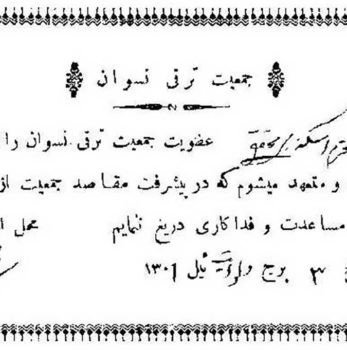 جمعیت ترقی نسوان
عضویت جمعیت ترقی نسوان را
و متعهد میشوم که در پیشرفت مقاصد جمعیت از
مساعدت و فداکاری دریغ ننمایم
محل
۳ برج ئیل ۱۳۰۱